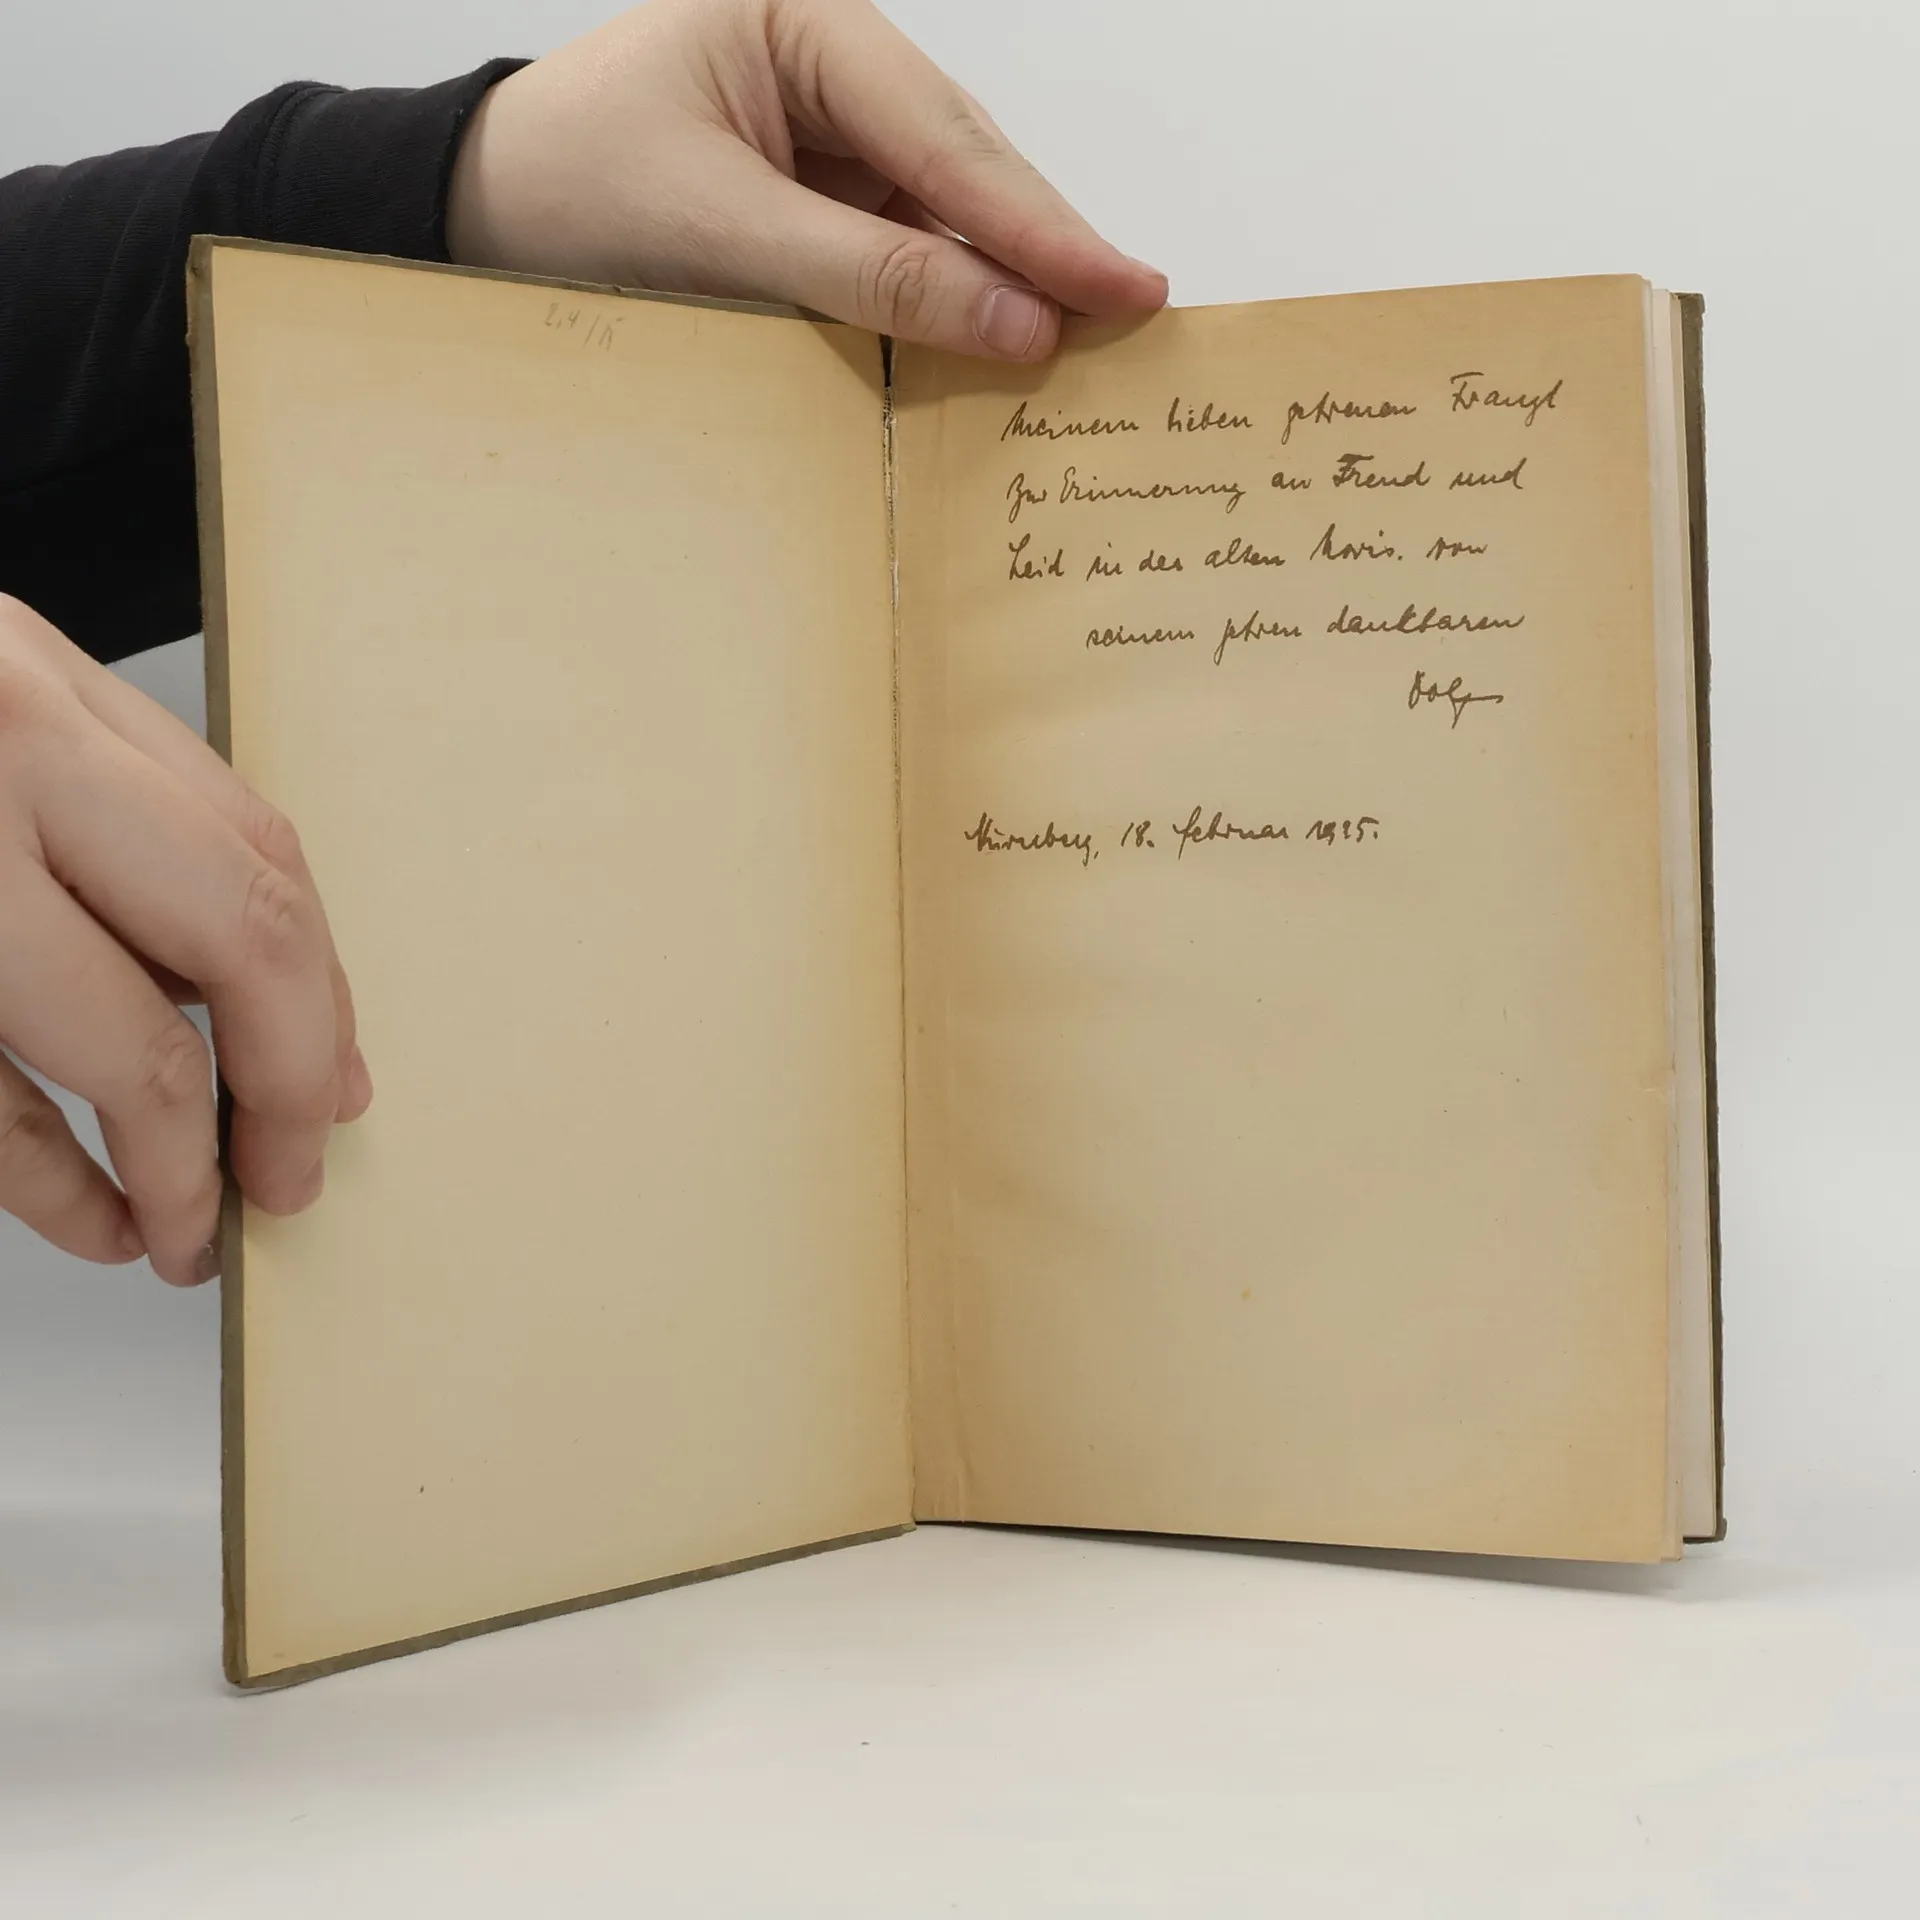 2,4/
Meinem lieben getreuen Franzl
Zur Erinnerung an Freud und
Leid in der alten Noris. von
seinem getreuen dankbaren
Nürnberg, 18. Februar 1925.